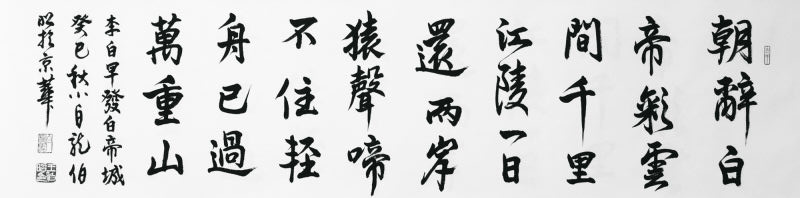 朝辭白
帝彩雲
間千里
江陵一日
還兩岸
猿聲啼
不住輕
舟已過
萬重山
李白早發白帝城
癸巳秋小月龍伯
於京華